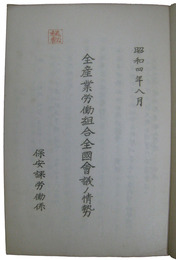 昭和四年八月
全産業労働組合全國會議ノ情勢
保安課労働係